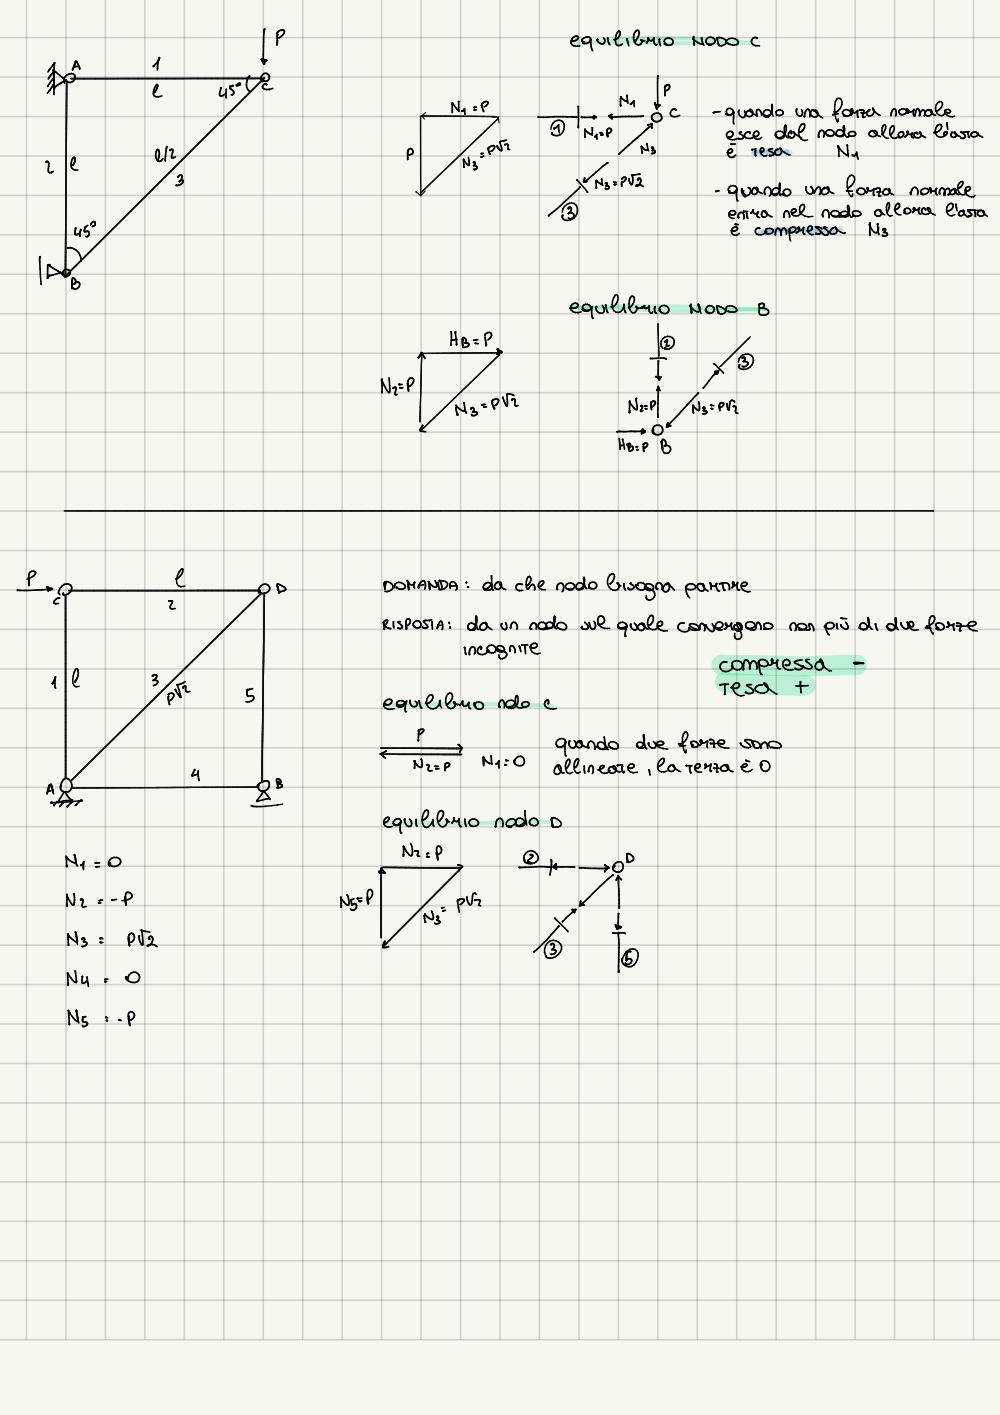 P
A
1
l
45°
C
2
l
l/2
3
45°
B
equilibrio NODO C
N1 = P
P
N3 = P√2
1
N1=P
N1
P
C
N3
N3=P√2
3
- quando una forza normale
esce dal nodo allora l'asta
è tesa N1
- quando una forza normale
entra nel nodo allora l'asta
è compressa N3
equilibrio NODO B
HB = P
N2=P
N3 = P√2
2
3
N2=P
N3=P√2
HB=P
B
P
C
l
2
D
1
l
3
P√2
5
A
4
B
DOMANDA: da che nodo bisogna partire
RISPOSTA: da un nodo sul quale convergono non più di due forze
incognite
compressa -
tesa +
equilibrio ndo C
P
N2=P
N1=0
quando due forze sono
allineate, la terza è 0
equilibrio nodo D
N2=P
N5=P
N3= P√2
2
D
3
5
N1 = 0
N2 = -P
N3 = P√2
N4 = 0
N5 = -P